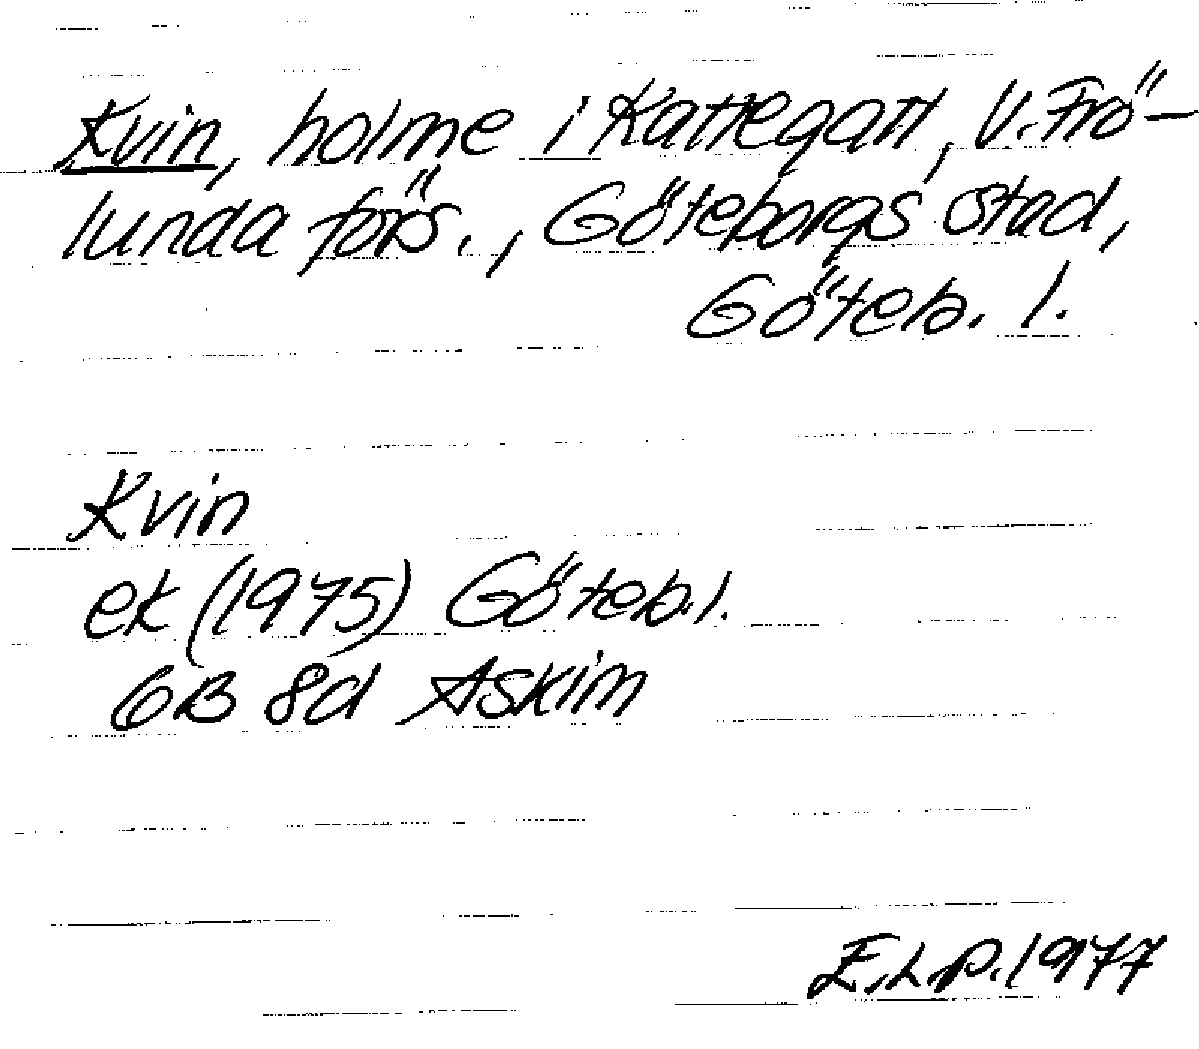 Kvin, holme i Kattegatt, V. Frö-
lunda förs., Göteborgs stad,
Göteb. l.
Kvin
ek (1975) Göteb. l.
6B 8d Askim
E.L.P. 1977